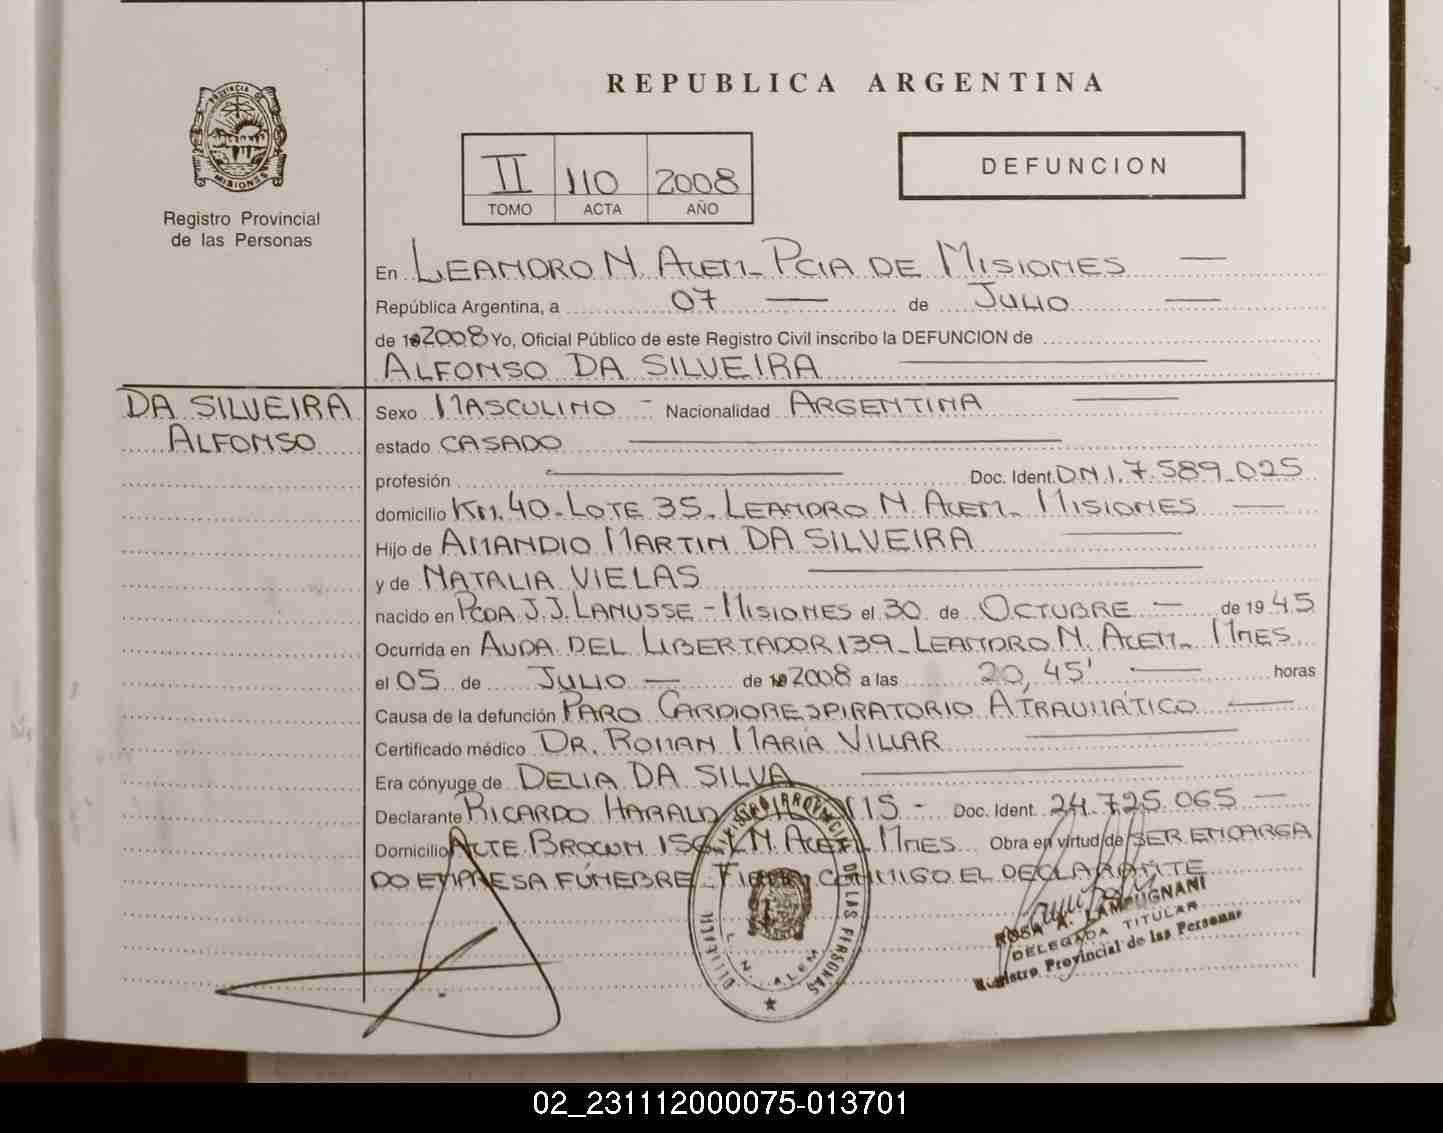 REPUBLICA ARGENTINA
PROVINCIA DE
MISIONES
Registro Provincial
de las Personas
II 110 2008
TOMO ACTA AÑO
DEFUNCION
En LEANDRO N. ALEM_ PCIA DE MISIONES —
República Argentina, a 07 — de JULIO —
de 2008 Yo, Oficial Público de este Registro Civil inscribo la DEFUNCION de
ALFONSO DA SILVEIRA
DA SILVEIRA
ALFONSO
Sexo MASCULINO - Nacionalidad ARGENTINA —
estado CASADO —
profesión — Doc. Ident. D.N.I. 7.589.025
domicilio KM. 40 - LOTE 35_ LEANDRO N. ALEM_ MISIONES —
Hijo de AMANDIO MARTIN DA SILVEIRA —
y de NATALIA VIELAS —
nacido en PCDA J.J. LANUSSE - MISIONES el 30 de OCTUBRE — de 1945
Ocurrida en AVDA DEL LIBERTADOR 139_ LEANDRO N. ALEM_ MNES
el 05 de JULIO — de 2008 a las 20,45' — horas
Causa de la defunción PARO CARDIORESPIRATORIO ATRAUMÁTICO —
Certificado médico DR. ROMAN MARÍA VILLAR —
Era cónyuge de DELIA DA SILVA —
Declarante RICARDO HARALD - Doc. Ident. 24.725.065 —
Domicilio ALTE BROWN L.N. ALEM_ MNES Obra en virtud de SER ENCARGA
DO EMPRESA FÚNEBRE_ FIRMA CONMIGO EL DECLARANTE
REGISTRO PROVINCIAL DE LAS PERSONAS
L. N. ALEM
ROSA A. LAMPUGNANI
DELEGADA TITULAR
Registro Provincial de las Personas
02_231112000075-013701